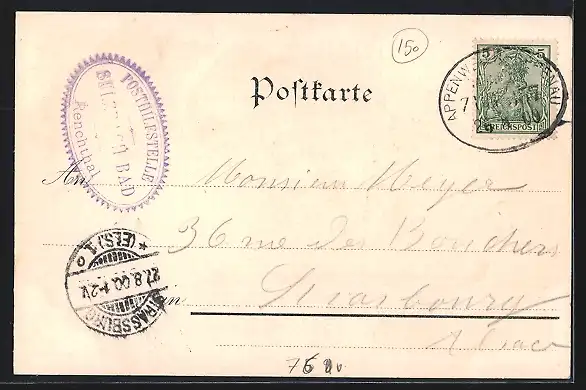 150
5 5
REICHSPOST
APPENW
POSTHILFSTELLE
SULZBACH BAD
Renchthal
Postkarte
An Monsieur Meyer
36 rue des Bouchers
in Strasbourg
Alsace
STRASSBURG
27.8.00.1-2V.
* (ELS.) 1 c